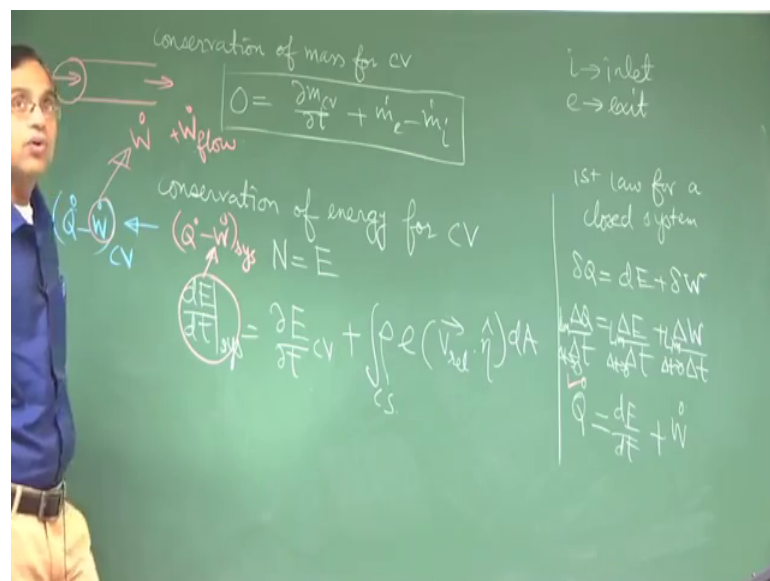 conservation of mass for CV
0 = ∂m_CV/∂t + ṁ_e - ṁ_i
Ẇ + Ẇ_flow
i → inlet
e → exit
conservation of energy for CV
(Q̇ - Ẇ)_CV ← (Q̇ - Ẇ)_sys
N = E
dE/dt|_sys = ∂E/∂t_CV + ∫_CS ρ e (V⃗_rel · η̂) dA
1st law for a
closed system
δQ = dE + δW
lim Δt→0 ΔQ/Δt = lim Δt→0 ΔE/Δt + lim Δt→0 ΔW/Δt
Q̇ = dE/dt + Ẇ